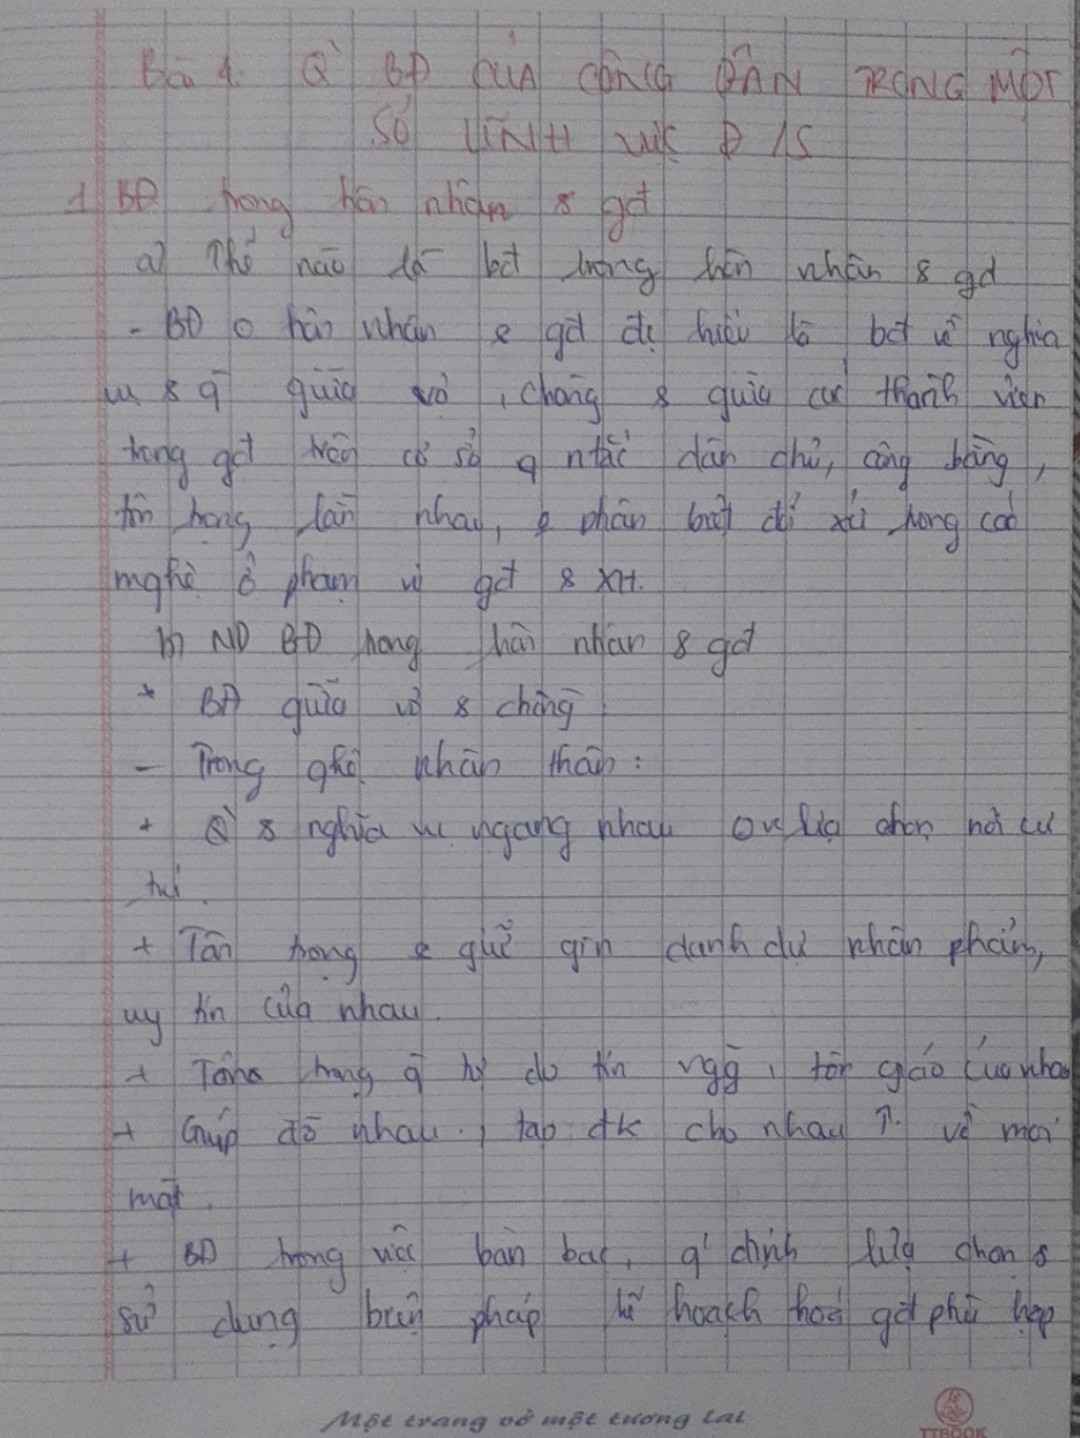 Bài 4: Q' BĐ CỦA CÔNG DÂN TRONG MỘT
SỐ LĨNH VỰC Đ/S
1. BĐ trong hôn nhân & gđ
a) Thế nào là bđ trong hôn nhân & gđ
- BĐ hôn nhân & gđ đc hiểu là bđ về nghĩa
vụ & q giữa vợ, chồng & giữa các thành viên
trong gđ trên cơ sở q ntắc dân chủ, công bằng,
tôn trọng lẫn nhau, phân biệt đối xử trong các
mqhệ ở phạm vi gđ & XH.
b) ND BĐ trong hôn nhân & gđ
* BĐ giữa vợ & chồng
- Trong qhệ nhân thân:
+ Q' & nghĩa vụ ngang nhau lựa chọn nơi cư
trú.
+ Tôn trọng & giữ gìn danh dự nhân phẩm,
uy tín của nhau.
+ Tôn trọng q tự do tín ngg, tôn giáo của nhau
+ Giúp đỡ nhau, tạo đk cho nhau ↑ về mọi
mặt.
+ BĐ trong việc bàn bạc, q' định lựa chọn &
sử dụng biện pháp kế hoạch hoá gđ phù hợp
Một trang vở một tương lai
TTBOOK